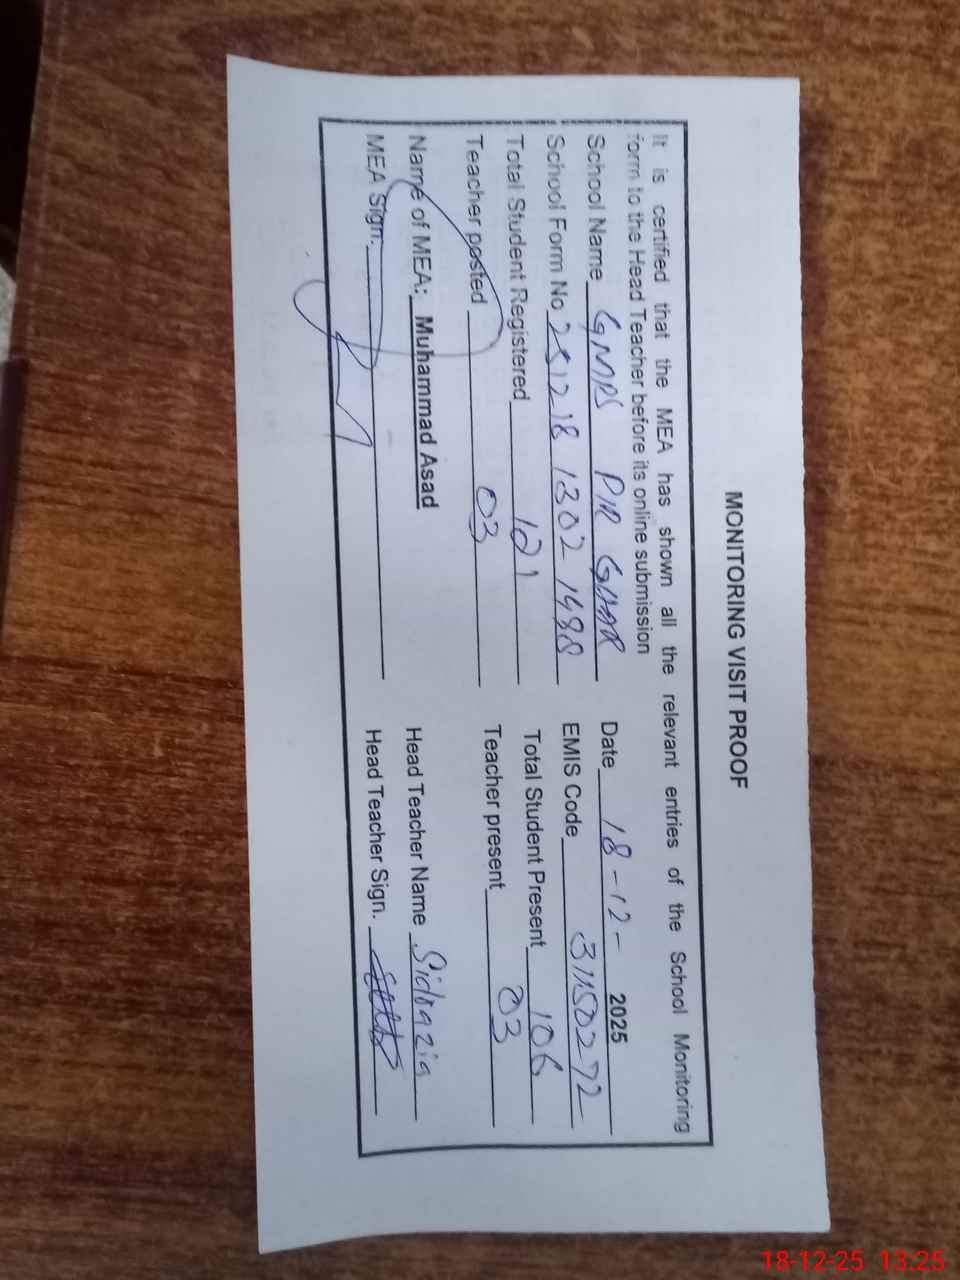 MONITORING VISIT PROOF
It is certified that the MEA has shown all the relevant entries of the School Monitoring
form to the Head Teacher before its online submission
School Name GMPS PIR GHAR Date 18-12- 2025
School Form No 251218 1302 1498 EMIS Code 31150272
Total Student Registered 121 Total Student Present 106
Teacher posted 03 Teacher present 03
Name of MEA: Muhammad Asad Head Teacher Name Sidra zia
MEA Sign: Head Teacher Sign.
18-12-25 13:25